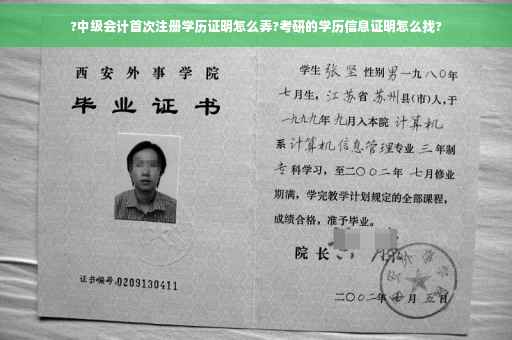 ?中级会计首次注册学历证明怎么弄?考研的学历信息证明怎么找?
西安外事学院
毕业证书
证书编号:0209130411
学生 张坚 性别 男 一九八〇年
七月生,江苏省 苏州县(市)人,于
一九九九年 九月入本院 计算机
系 计算机信息管理专业 三 年制
专科学习,至二〇〇二年 七月修业
期满,学完教学计划规定的全部课程,
成绩合格,准予毕业。
院 长
二〇〇二年 七月 五日